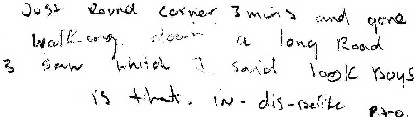 Just Round corner 3 mins and gone
walking down a long Road
3 saw which I said look Boys
is that. in-dis-
P.t.o.